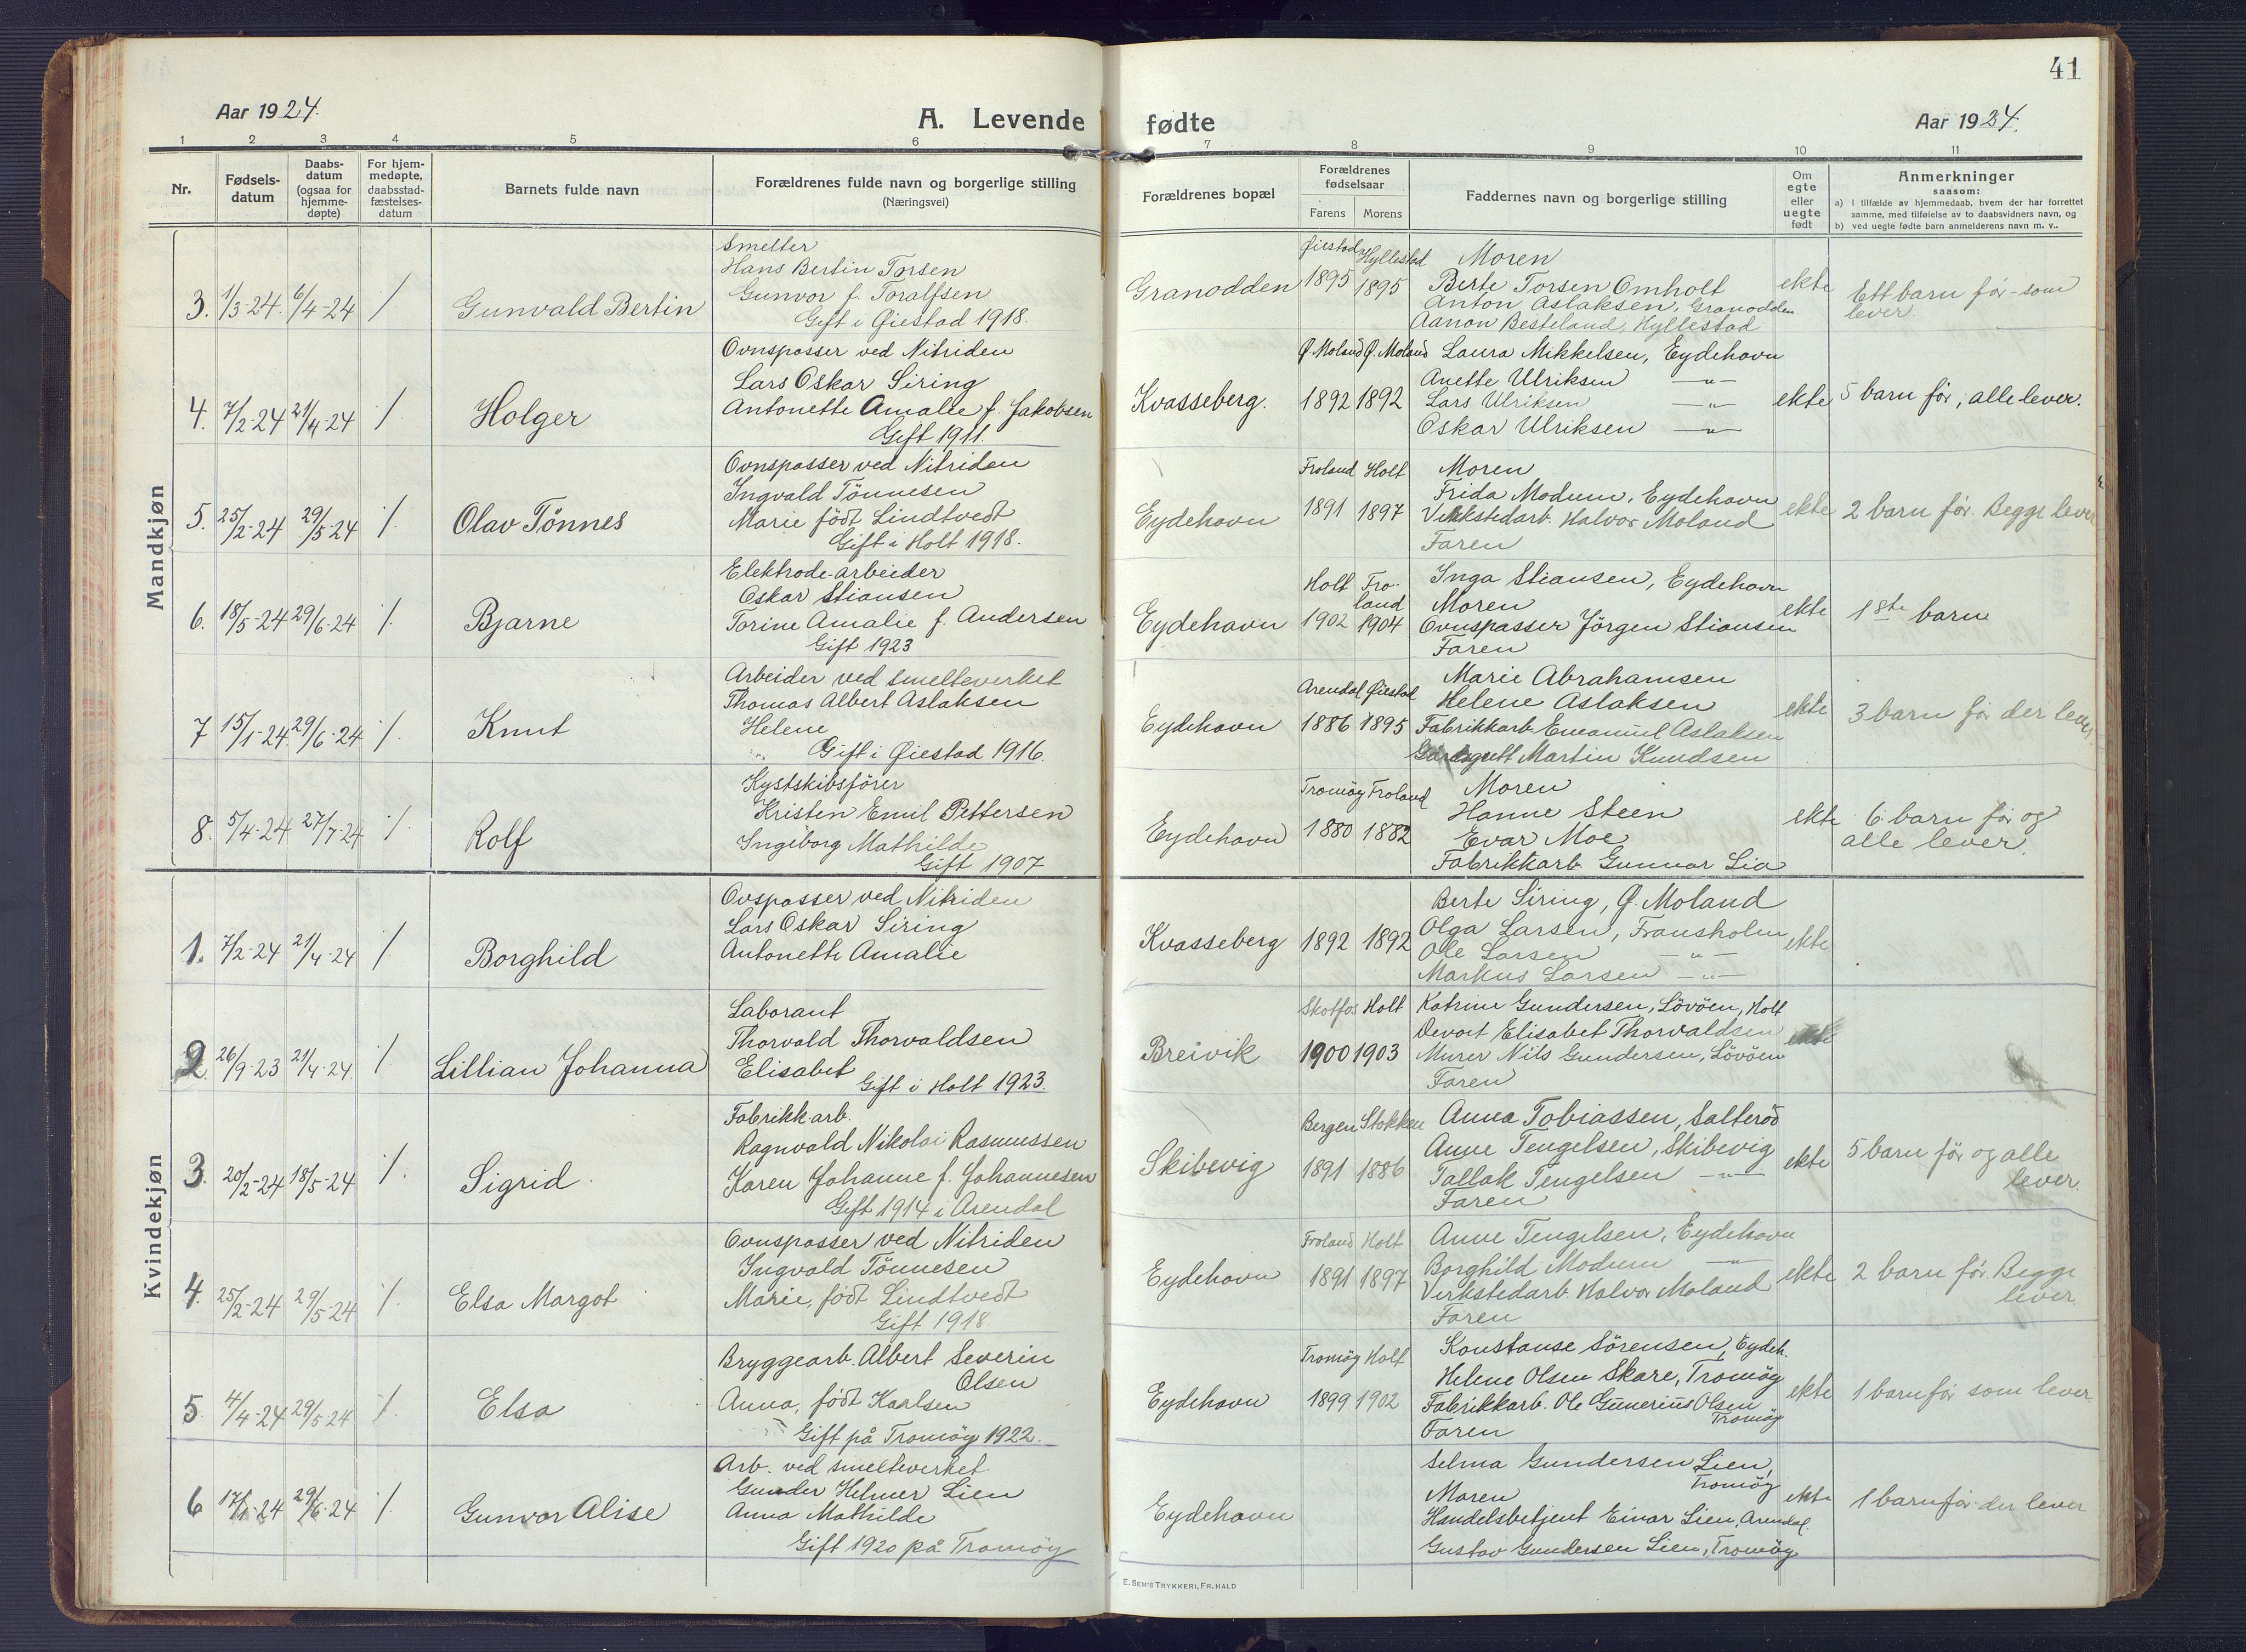 41
Aar 1924.
A. Levende
fødte
Aar 1924.
1 2 3 4 5 6 7 8 9 10 11
Nr.
Fødsels-
datum
Daabs-
datum
(ogsaa for
hjemme-
døpte)
For hjem-
medøpte,
daabsstad-
fæstelses-
datum
Barnets fulde navn
Forældrenes fulde navn og borgerlige stilling
(Næringsvei)
Forældrenes bopæl
Forældrenes
fødselsaar
Farens Morens
Faddernes navn og borgerlige stilling
Om
egte
eller
uegte
født
Anmerkninger
saasom:
a) i tilfælde av hjemmedaab, hvem der har forrettet
samme, med tilføielse av to daabsvidners navn, og
b) ved uegte fødte barn anmelderens navn m. v..
Mandkjøn
3. 1/3-24. 6/4-24 /
Gunvald Bertin
Smelter
Hans Bertin Torsen
Gunvor f. Toralfsen
Gift i Øiestad 1918.
Granodden
Øiestad Hyllestad
1895 1895
Moren
Berte Torsen Omholt
Anton Aslaksen, Granodden
Aanon Besteland, Hyllestad
ekte
Ett barn før - som
lever.
4. 7/2-24 21/4-24 /.
Holger
Ovnspasser ved Nitriden
Lars Oskar Siring
Antonette Amalie f. Jakobsen
Gift 1911.
Kvasseberg.
Ø. Moland Ø. Moland
1892 1892
Laura Mikkelsen, Eydehavn
Anette Ulriksen —"—
Lars Ulriksen —"—
Oskar Ulriksen —"—
ekte
5 barn før, alle lever.
5. 25/2-24 29/5-24 /.
Olav Tönnes
Ovnspasser ved Nitriden
Ingvald Tönnesen
Marie födt Lindtvedt
Gift i Holt 1918.
Eydehavn
Froland Holt
1891 1897
Moren
Frida Modum, Eydehavn
Verkstedarb. Halvor Moland
Faren
ekte
2 barn før. Begge lever
6. 18/5-24 29/6-24 /.
Bjarne
Elektrode-arbeider
Oskar Stiansen
Torine Amalie f. Andersen
Gift 1923
Eydehavn
Holt Fro-
land
1902 1904
Inga Stiansen, Eydehavn
Moren
Ovnspasser Jörgen Stiansen
Faren
ekte
1ste barn
7 15/1-24 29/6-24 /.
Knut
Arbeider ved smelteverket
Thomas Albert Aslaksen
Helene
Gift i Øiestad 1916.
Eydehavn
Arendal Øiestad
1886 1895
Marie Abrahamsen
Helene Aslaksen
Fabrikkarb. Emanuel Aslaksen
Martin Knudsen
ekte
3 barn før der lever.
8. 5/4-24 27/7-24 /.
Rolf
Kystskibsfører
Kristen Emil Pettersen
Ingeborg Mathilde
Gift 1907
Eydehavn
Tromöy Froland
1880 1882
Moren
Hanne Steen
Evar Moe
Fabrikkarb. Gunnar Lia
ekte
6 barn før og
alle lever.
Kvindekjøn
1. 7/2-24 21/4-24 /.
Borghild
Ovspasser ved Nitriden
Lars Oskar Siring
Antonette Amalie
Kvasseberg
1892 1892
Berte Siring, Ø. Moland
Olga Larsen, Fransholm
Ole Larsen —"—
Markus Larsen —"—
ekte
2. 26/9-23 21/4-24. /
Lillian Johanna
Laborant
Thorvald Thorvaldsen
Elisabet
Gift i Holt 1923.
Breivik
Skotfos Holt
1900 1903
Katrine Gundersen, Lövöen, Holt
Elisabet Thorvaldsen
Murer Nils Gundersen, Lövöen
Faren
ekte
3. 20/2-24 18/5-24 /.
Sigrid.
Fabrikk.arb.
Ragnvald Nikolai Rasmussen
Karen Johanne f. Johannesen
Gift 1914 i Arendal
Skibevig
Bergen Stokken
1891 1886
Anna Tobiassen, Salteröd
Anne Tengelsen, Skibevig
Tallak Tengelsen —"—
Faren
ekte
5 barn før og alle
lever.
4. 25/2-24 29/5-24 /.
Elsa Margot
Ovnspasser ved Nitriden
Ingvald Tönnesen
Marie, födt Lindtvedt
Gift 1918
Eydehavn
Froland Holt
1891 1897
Anne Tengelsen, Eydehavn
Borghild Modum —"—
Verkstedarb. Halvor Moland
Faren
ekte
2 barn før. Begge
lever
5 4/4-24 29/5-24 /.
Elsa
Bryggearb. Albert Severin
Olsen
Anna, födt Karlsen
Gift på Tromöy 1922.
Eydehavn
Tromöy Holt
1899 1902
Konstanse Sörensen, Eydeh.
Helene Olsen Skare, Tromöy
Fabrikkarb. Ole Gunerius Olsen
Tromöy
Faren
ekte
1 barn før som lever.
6 17/1-24 29/6-24 /.
Gunvor Alise
Arb. ved smelteverket
Gunder Helmer Lien
Anna Mathilde
Gift 1920 på Tromöy
Eydehavn
Selma Gundersen Lien,
Tromöy
Moren
Handelsbetjent Einar Lien, Arendal.
Gustav Gundersen Lien, Tromöy
ekte
1 barn før der lever
E. SEM'S TRYKKERI, FR.HALD